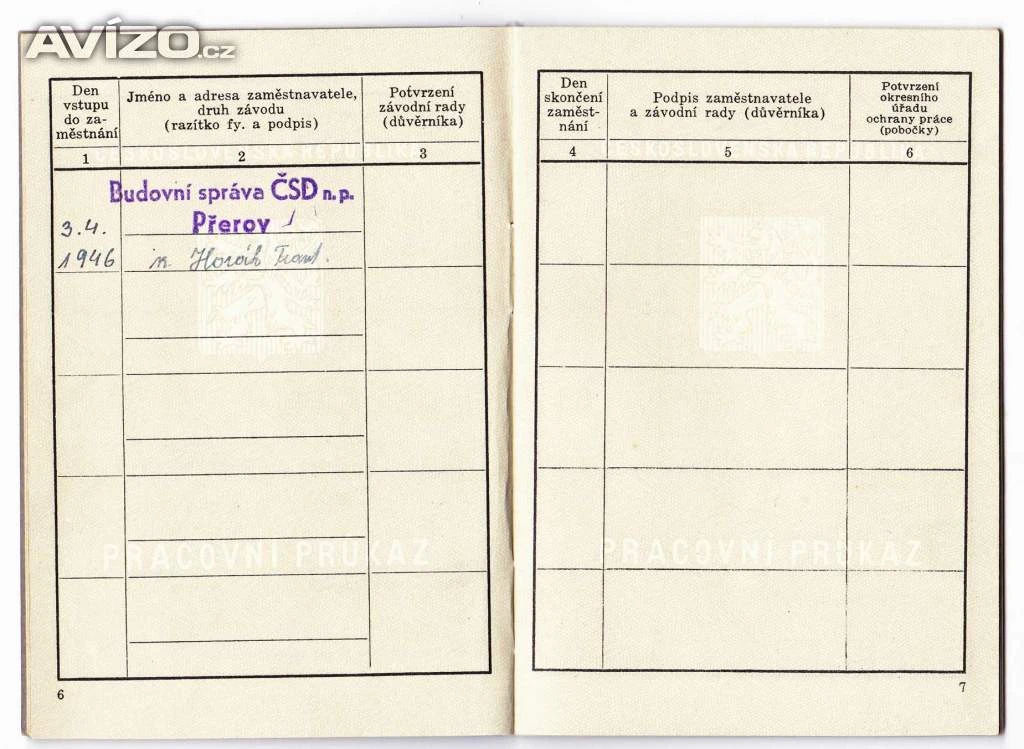 AVÍZO.cz
Den
vstupu
do za-
městnání
Jméno a adresa zaměstnavatele,
druh závodu
(razítko fy. a podpis)
Potvrzení
závodní rady
(důvěrníka)
1
2
3
ČESKOSLOVENSKÁ REPUBLIKA
Budovní správa ČSD n.p.
Přerov
3.4.
1946
Horák Frant.
PRACOVNÍ PRŮKAZ
6
Den
skončení
zaměst-
nání
Podpis zaměstnavatele
a závodní rady (důvěrníka)
Potvrzení
okresního
úřadu
ochrany práce
(pobočky)
4
5
6
ČESKOSLOVENSKÁ REPUBLIKA
PRACOVNÍ PRŮKAZ
7